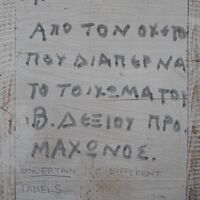 ΑΠΟ ΤΟΝ ΟΧΕΤΟ
ΠΟΥ ΔΙΑΠΕΡΝΑ
ΤΟ ΤΟΙΧΩΜΑ ΤΟΥ
Β. ΔΕΞΙΟΥ ΠΡΟ
ΜΑΧΩΝΟΣ.
UNCERTAIN DIFFERENT
LABELS